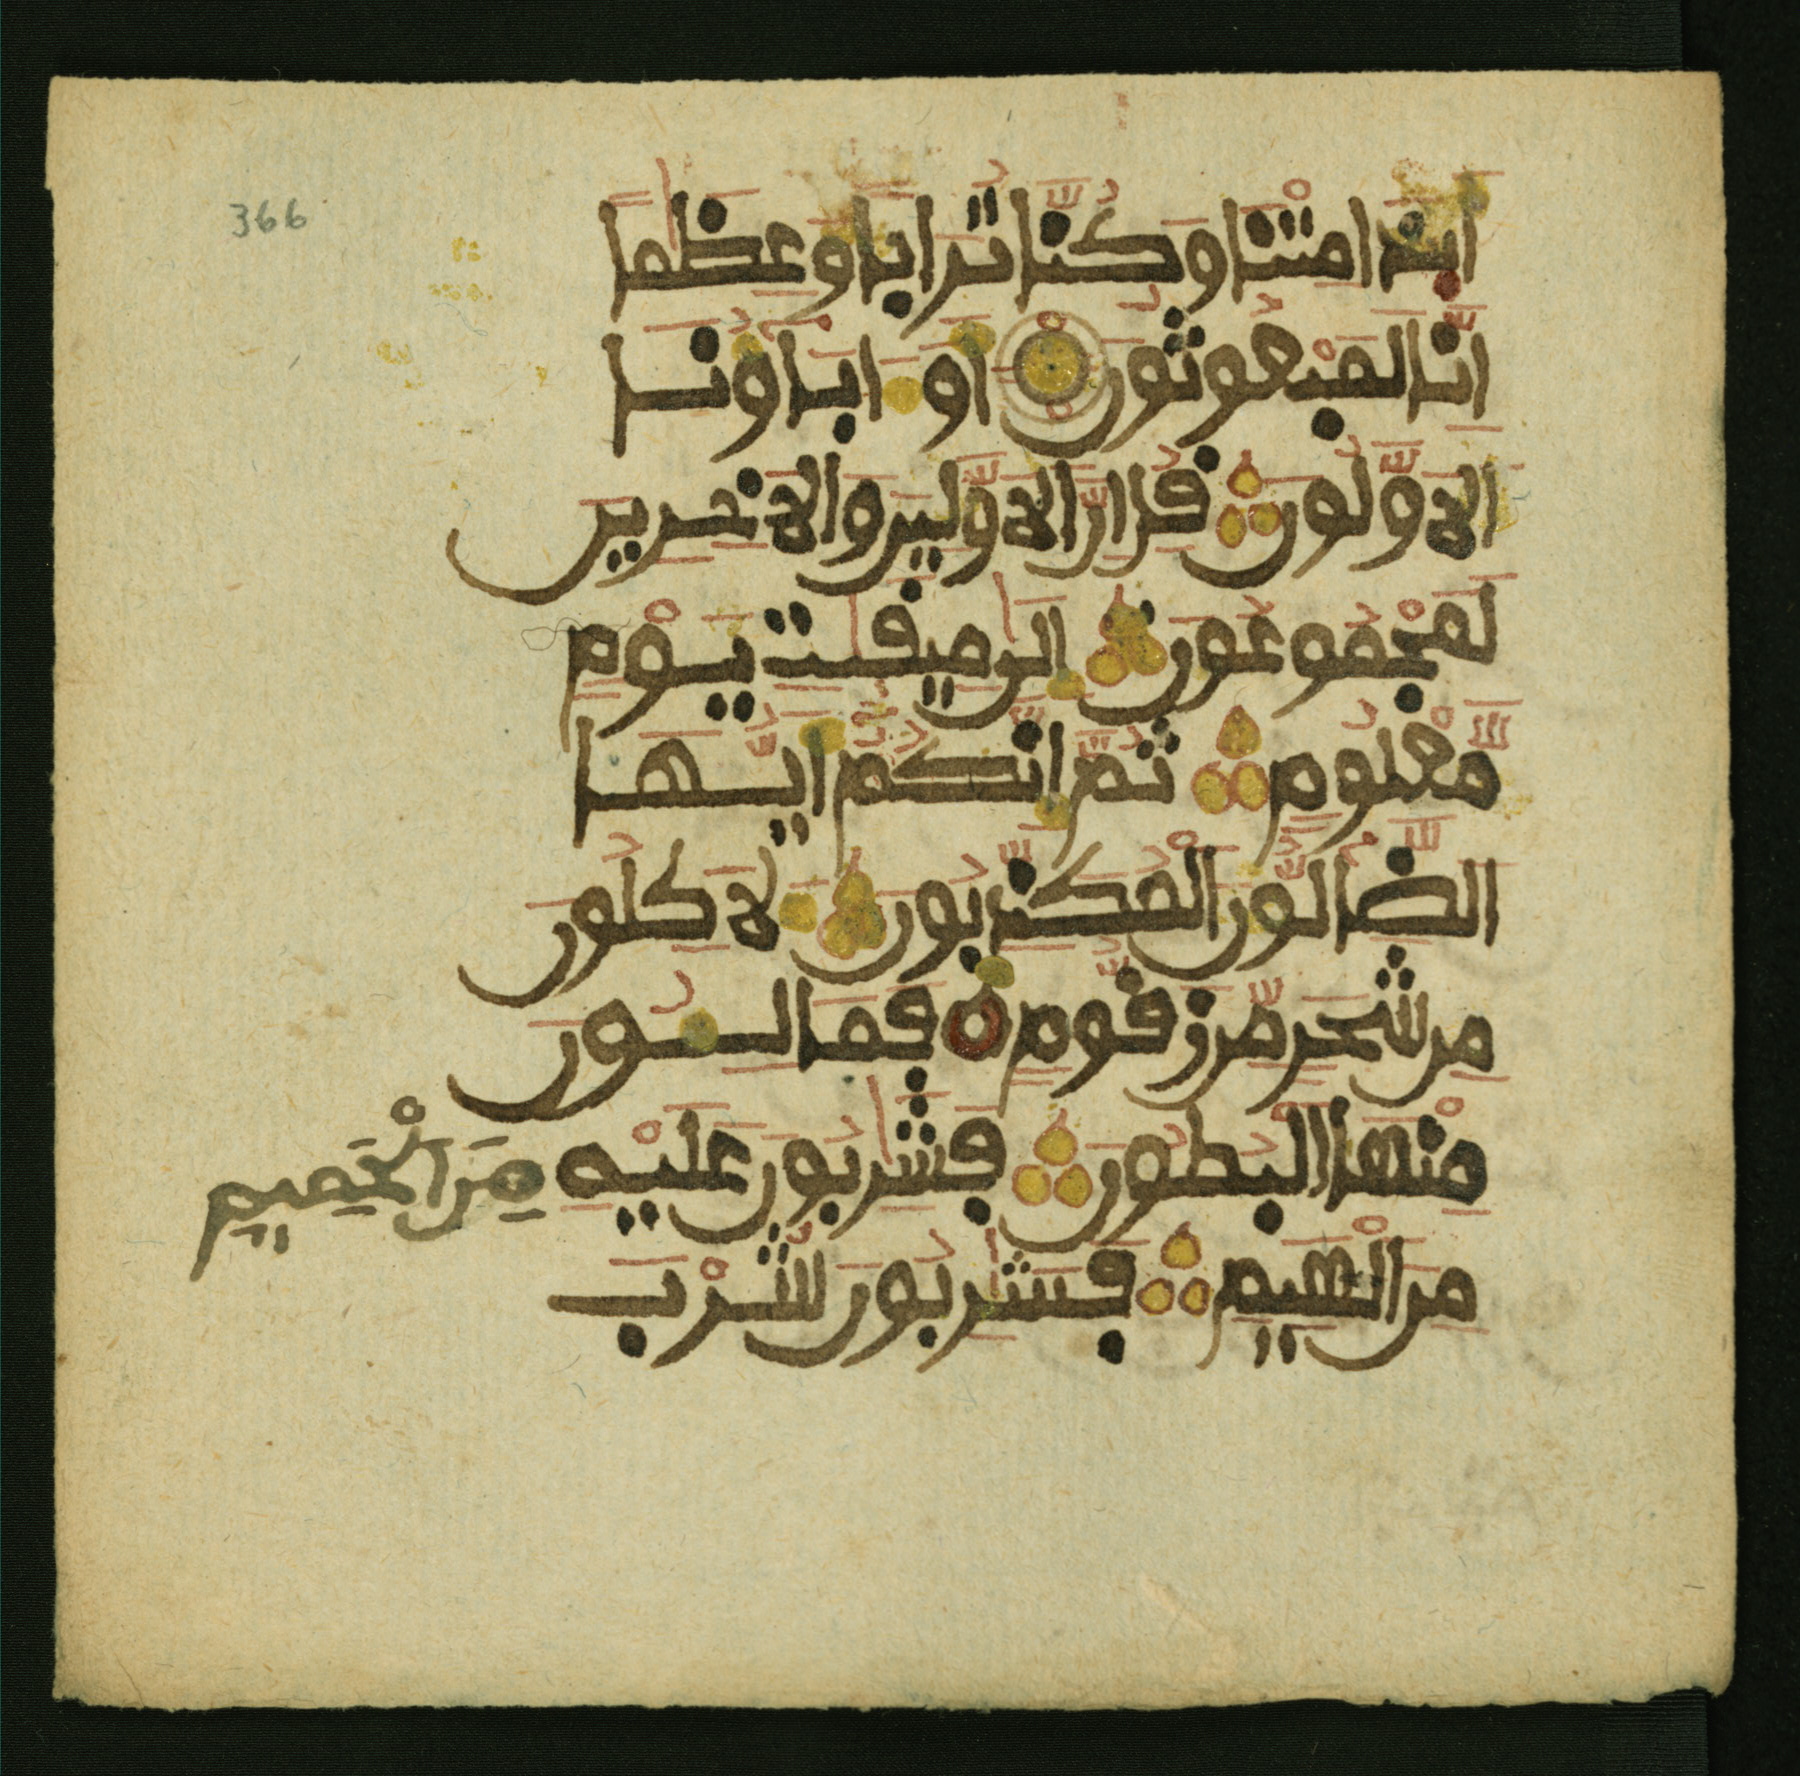 366
اَئذَا مِتْنَا وَكُنَّا تُرَابًا وَعِظَٰمًا
إِنَّا لَمَبْعُوثُونَ أَوَ ءَابَآؤُنَا
الَاوَّلُونَ قُلِ انَّ الَاوَّلِينَ وَالَاخِرِينَ
لَمَجْمُوعُونَ إِلَىٰ مِيقَٰتِ يَوْمٍ
مَّعْلُومٍ ثُمَّ إِنَّكُمُ أَيُّهَا
الضَّآلُّونَ الْمُكَذِّبُونَ لَأَكِلُونَ
مِن شَجَرٍ مِّن زَقُّومٍ فَمَالِئُونَ
مِنْهَا الْبُطُونَ فَشَٰرِبُونَ عَلَيْهِ مِنَ الْحَمِيمِ
مِنَ الْهِيمِ فَشَٰرِبُونَ شُرْبَ